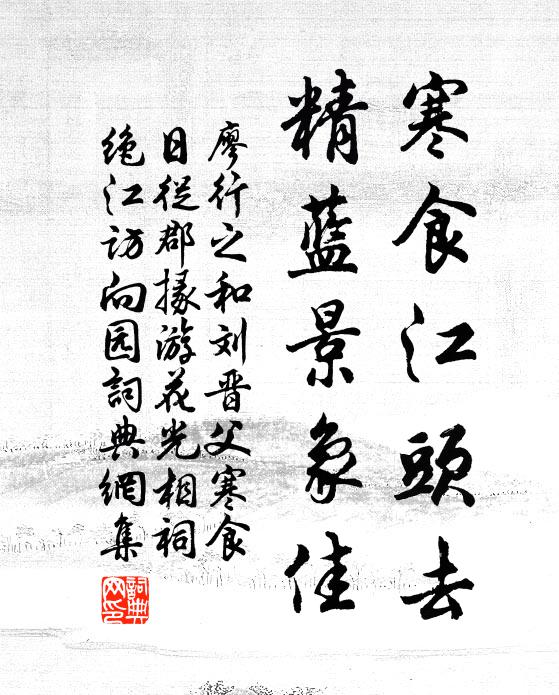 寒食江頭去
精藍景象佳
廖行之和刘晋父寒食
日従郡掾游花光相祠
绝江访向园詞典網集
詞典